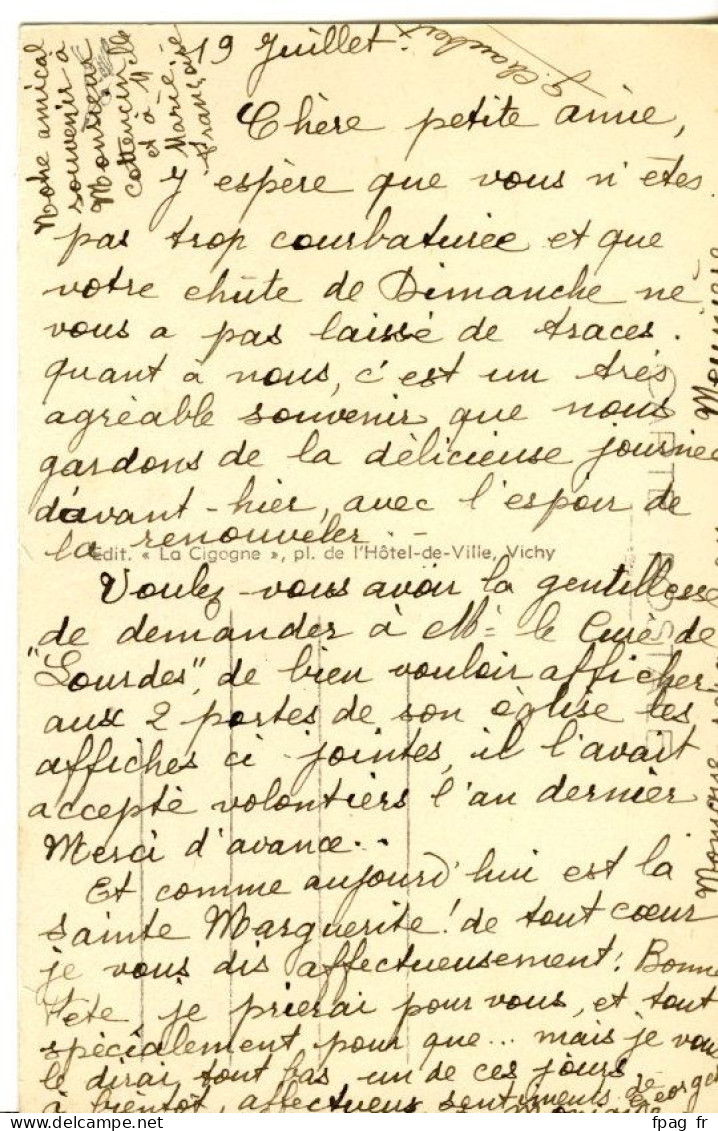 19 Juillet.
Chère petite amie,
J'espère que vous n'êtes
pas trop courbaturée et que
votre chûte de Dimanche ne
vous a pas laissé de traces.
quant à nous, c'est un très
agréable souvenir que nous
gardons de la délicieuse journée
d'avant-hier, avec l'espoir de
la renouveler. -
Edit. « La Cigogne », pl. de l'Hôtel-de-Ville, Vichy
Voulez-vous avoir la gentillesse
de demander à Mr le Curé de
"Lourdes", de bien vouloir afficher
aux 2 portes de son église les
affiches ci-jointes, il l'avait
accepté volontiers l'an dernier
Merci d'avance..
Et comme aujourd'hui est la
Sainte Marguerite! de tout cœur
je vous dis affectueusement: Bonne
Fête je prierai pour vous, et tout
spécialement pour que... mais je vous
le dirai tout bas un de ces jours
à bientôt, affectueux sentiments de Georges
Notre amical
souvenir à
Monsieur
et à Mlle
Marie
Françoise
CARTE POSTALE